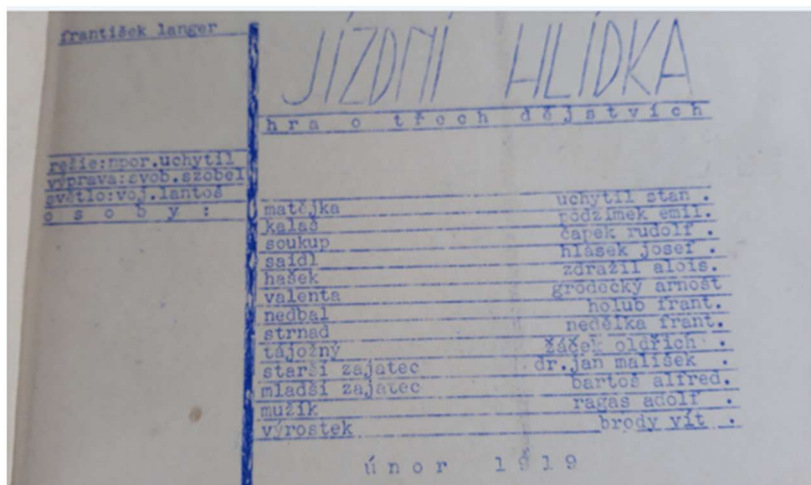 františek langer
JÍZDNÍ HLÍDKA
hra o třech dějstvích
režie:npor.uchytil
výprava:svob.szobel
světlo:voj.lantoš
osoby:
matějka uchytil stan.
kalaš podzimek emil.
soukup čapek rudolf.
saidl hlásek josef.
hašek zdražil alois.
valenta grodecký arnošt
nedbal holub frant.
strnad nedělka frant.
tájožný žáček oldřich.
starší zajatec dr.jan malíšek.
mladší zajatec bartoš alfred.
mužík ragas adolf.
výrostek brody vít.
únor 1919